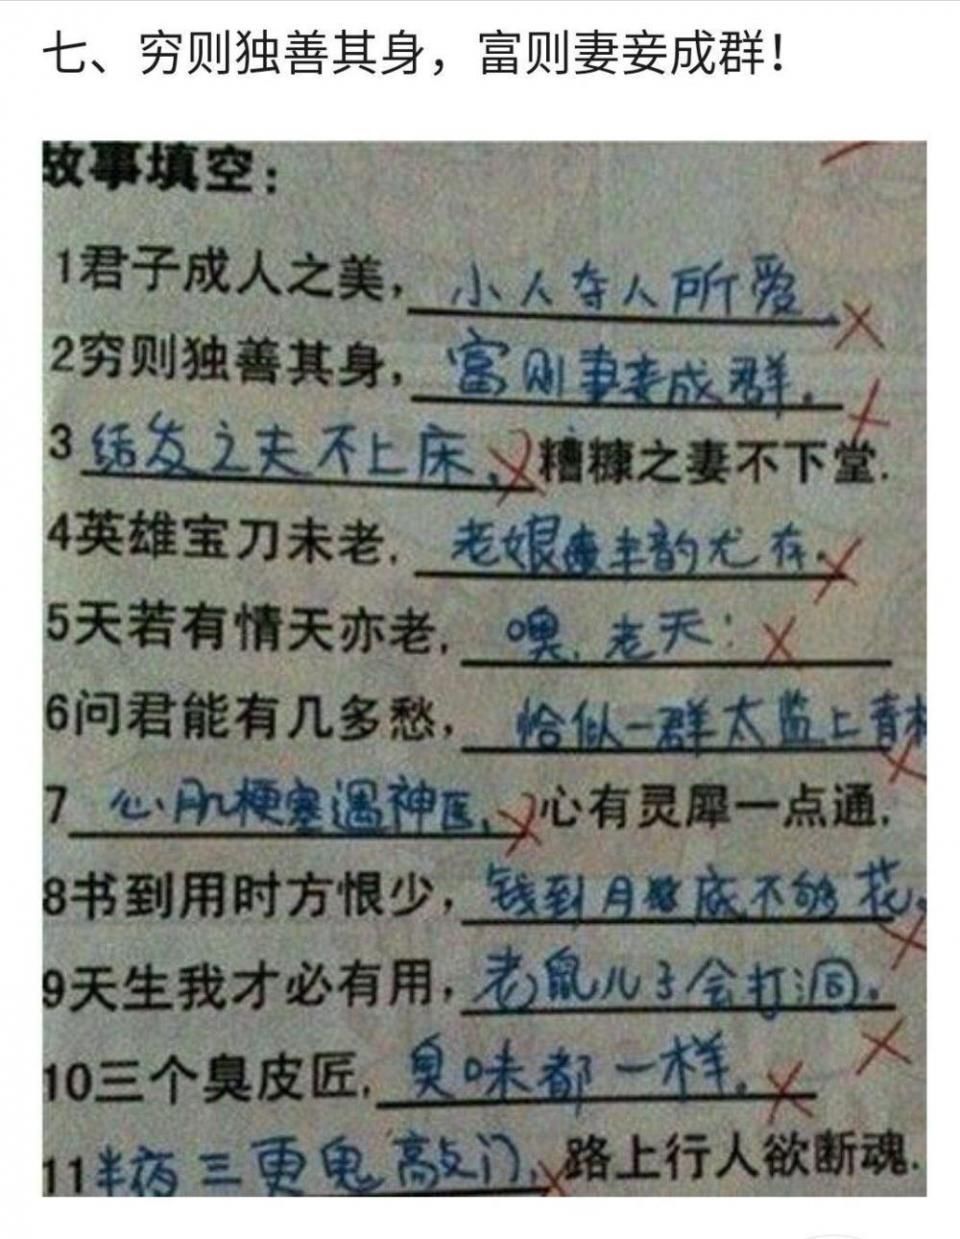 七、穷则独善其身，富则妻妾成群！
故事填空：
1君子成人之美，小人夺人所爱.
2穷则独善其身，富则妻妾成群.
3结发之夫不上床，糟糠之妻不下堂.
4英雄宝刀未老，老娘丰韵尤存.
5天若有情天亦老，噢，老天！
6问君能有几多愁，恰似一群太监上青
7心肌梗塞遇神医，心有灵犀一点通，
8书到用时方恨少，钱到月底不够花.
9天生我才必有用，老鼠儿子会打洞.
10三个臭皮匠，臭味都一样.
11半夜三更鬼敲门，路上行人欲断魂.